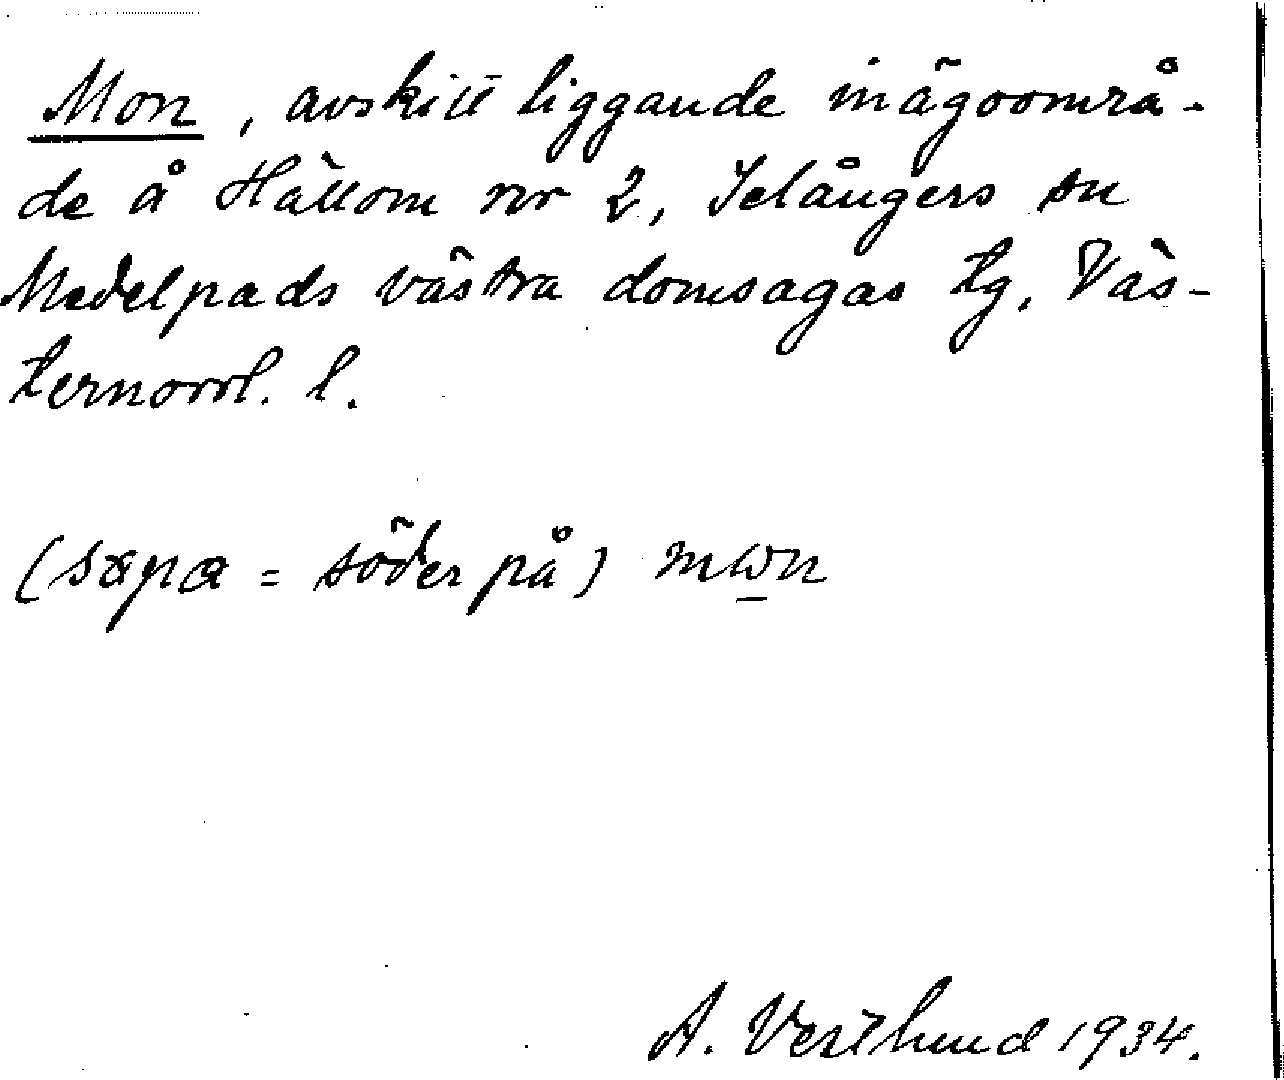 Mon, avskilt liggande inägoområ-
de å Hällom nr 2, Selångers sn
Medelpads västra domsagas tg, Väs-
ternorrl. l.
(søpa = söder på) mωn
A. Vestlund 1934.